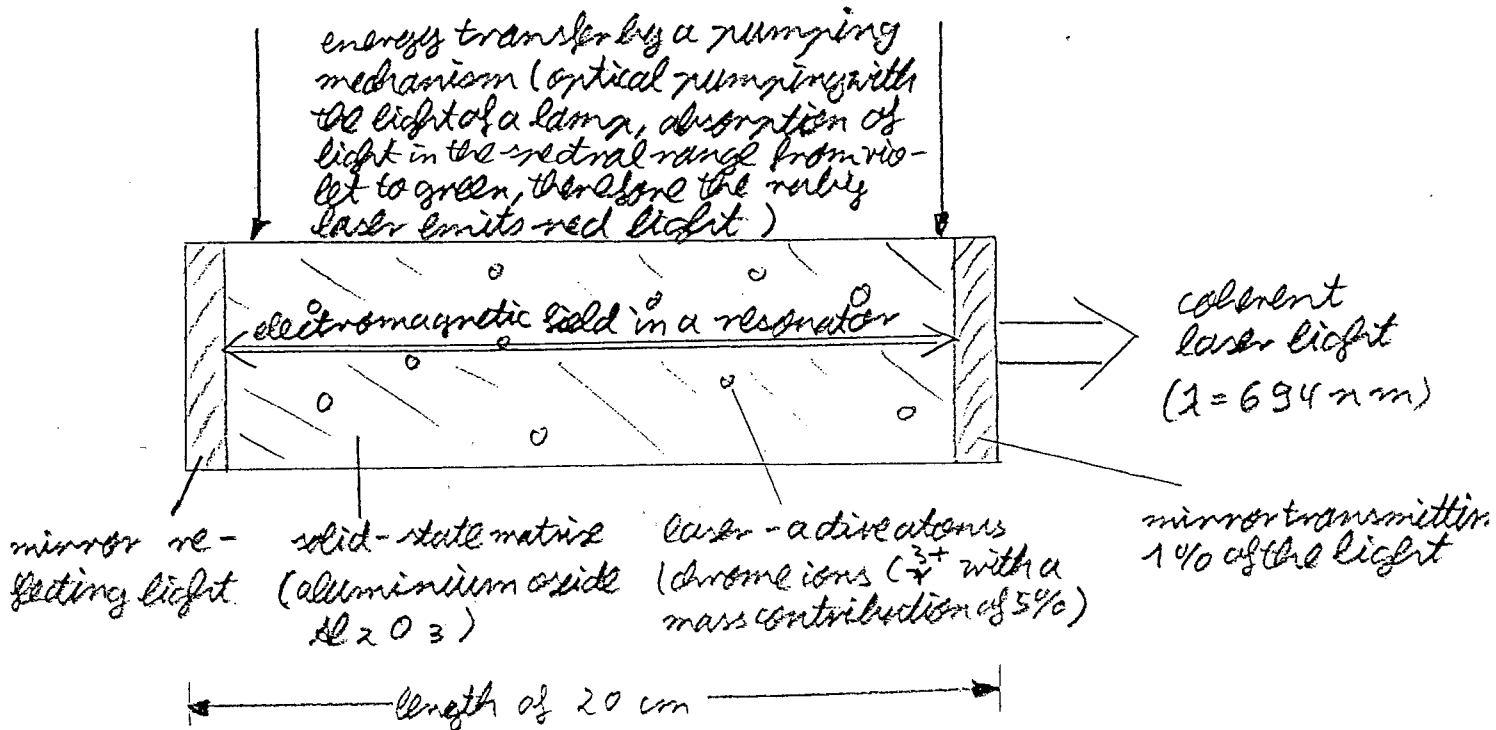 energy transfer by a pumping
mechanism (optical pumping with
the light of a lamp, absorption of
light in the spectral range from vio-
let to green, therefore the ruby
laser emits red light)
electromagnetic field in a resonator
coherent
laser light
(λ = 694 nm)
mirror re-
flecting light
solid-state matrix
(aluminium oxide
Al2O3)
laser-active atoms
(chrome ions Cr3+ with a
mass contribution of 5%)
mirror transmittin
1% of the light
length of 20 cm